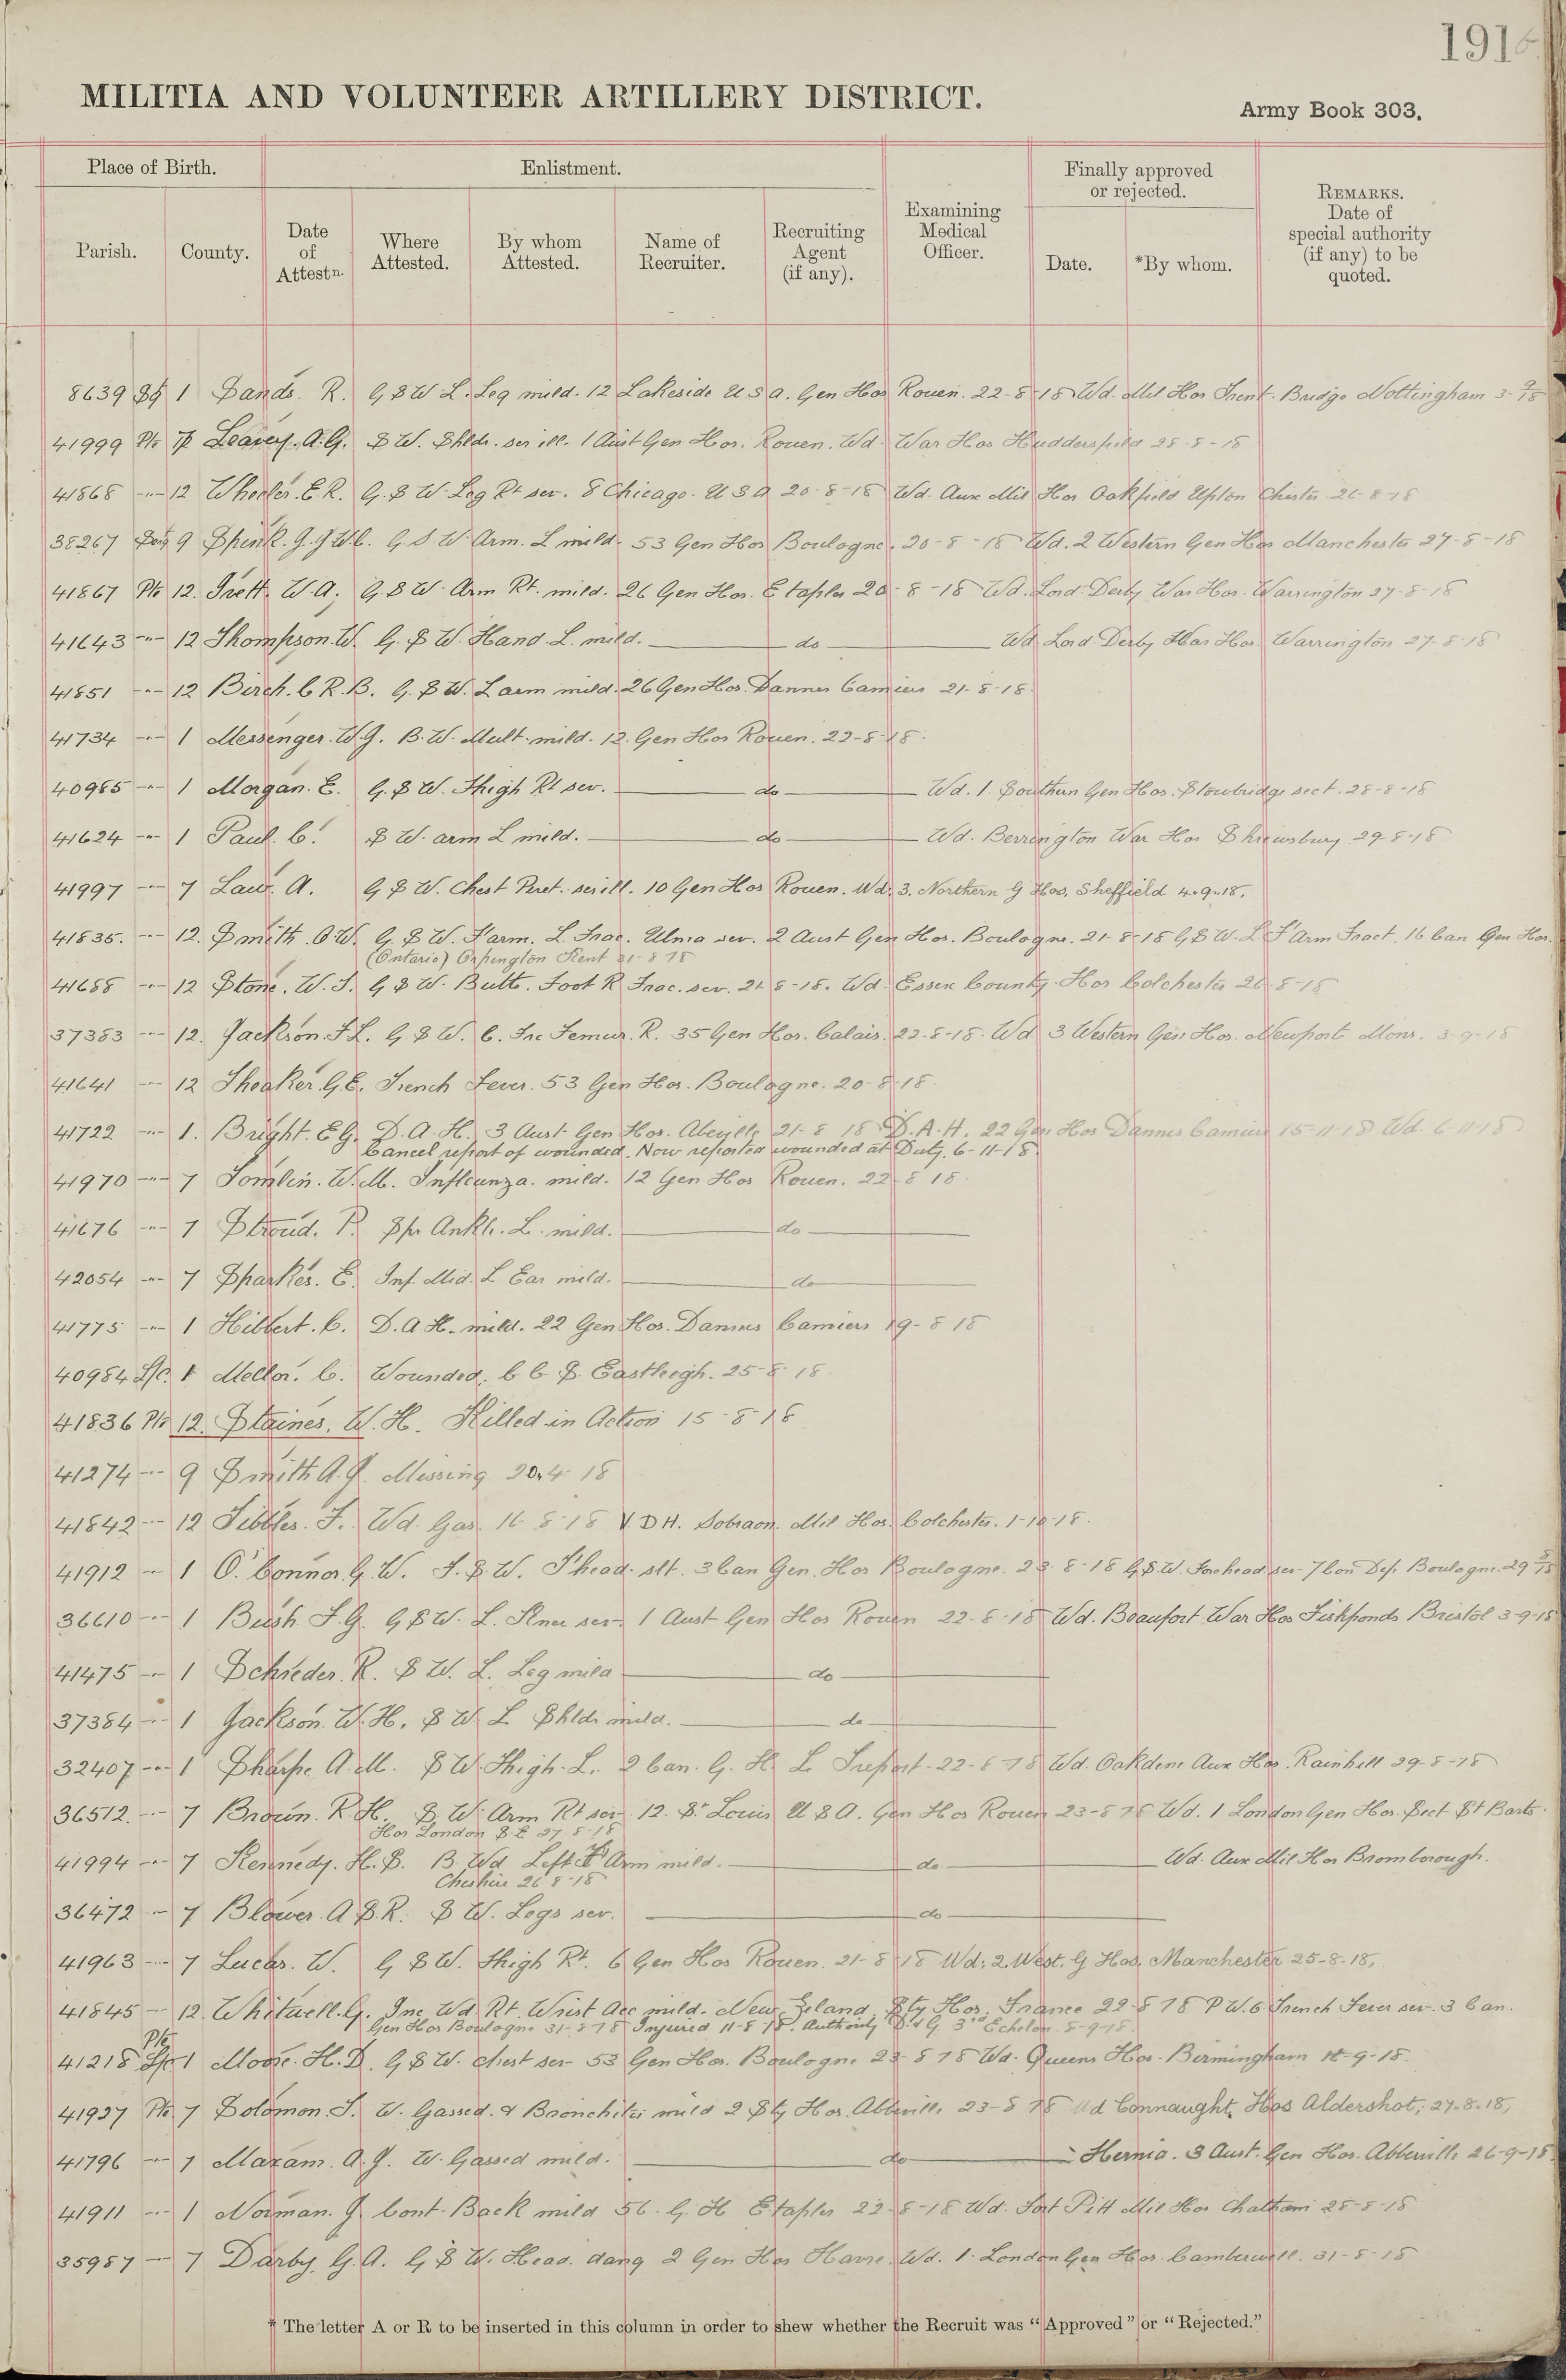 191
MILITIA AND VOLUNTEER ARTILLERY DISTRICT.
Army Book 303.
Place of Birth.
Enlistment.
Examining Medical Officer.
Finally approved or rejected.
REMARKS. Date of special authority (if any) to be quoted.
Parish.
County.
Date of Attestn.
Where Attested.
By whom Attested.
Name of Recruiter.
Recruiting Agent (if any).
Date.
*By whom.
8639 Sgt 1 Sands. R. G.S.W. L. Leg mild. 12 Lakeside U.S.A. Gen Hos Rouen. 22-8-18 Wd. Mil Hos Trent Bridge Nottingham 3-9/18
41999 Pte 7 Leavey. A.G. S.W. Shldr. ser ill. 1 Aust Gen Hos. Rouen. Wd. War Hos Huddersfield 28-8-18
41868 -"- 12 Wheeler. E.R. G.S.W. Leg Rt sev. 8 Chicago. U.S.A 20-8-18 Wd. Aux Mil Hos Oakfield Upton Chester 26-8-18
38267 9 Spink. G.S.W. Arm. L mild. 53 Gen Hos Boulogne. 20-8-18 Wd. 2 Western Gen Hos Manchester 27-8-18
41867 Pte 12. Trett. W.A. G.S.W. Arm Rt. mild. 26 Gen Hos. Etaples 20-8-18 Wd. Lord Derby War Hos. Warrington 27-8-18
41643 -"- 12 Thompson. W. G.S.W. Hand L. mild. do Wd Lord Derby War Hos Warrington 27-8-18
41851 -"- 12 Birch. C.R.B. G.S.W. L arm mild. 26 Gen Hos. Dannes Camiers 21-8-18
41734 -"- 1 Messenger. W.G. B.W. Mult. mild. 12. Gen Hos Rouen. 22-8-18.
40985 -"- 1 Morgan. E. G.S.W. Thigh Rt sev. do Wd. 1. Southern Gen Hos. Stourbridge sect. 28-8-18
41624 -"- 1 Paul. C. S.W. arm L mild. do Wd. Berrington War Hos Shrewsbury 29-8-18
41997 -"- 7 Law. A. G.S.W. Chest Penet. ser ill. 10 Gen Hos Rouen. Wd. 3. Northern G Hos. Sheffield 4.9.18.
41835. -"- 12. Smith. O.W. G.S.W. F'arm. L. Frac. Ulna sev. 2 Aust Gen Hos. Boulogne. 21-8-18 G.S.W. L. F'Arm Fract. 16 Can Gen Hos.
(Ontario) Orpington Kent 31-8-18
41688 -"- 12 Stone. W.J. G.S.W. Butt. Foot R Frac. sev. 21-8-18. Wd. Essex County Hos Colchester 26-8-18
37383 -"- 12. Jackson. F.L. G.S.W. C. Frac Femur. R. 35 Gen Hos. Calais. 22-8-18. Wd 3 Western Gen Hos. Newport Mons. 3-9-18
41641 -"- 12 Sheaker. G.E. Trench Fever. 53 Gen Hos. Boulogne. 20-8-18
41722 -"- 1. Bright. E.G. D.A.H. 3 Aust Gen Hos. Abeville 21-8-18 D.A.H. 22 Gen Hos Dannes Camiers 15-11-18 Wd. 6-11-18
Cancel report of wounded. Now reported wounded at Duty. 6-11-18.
41970 -"- 7 Tomlin. W.M. Influenza. mild. 12 Gen Hos Rouen. 22-8-18.
41676 -"- 7 Stroud. P. Spr Ankle. L. mild. do
42054 -"- 7 Sparkes. E. Inf. Mid. L Ear mild. do
41775 -"- 1 Hibbert. C. D.A.H. mild. 22 Gen Hos. Dannes Camiers 19-8-18
40984 L/c. 1 Mellor. C. Wounded. C.C.S. Eastleigh. 25-8-18
41836 Pte 12. Staines. W.H. Killed in Action 15-8-18
41274 -"- 9 Smith A.J. Missing 20.4.18
41842 -"- 12 Tibbles. F. Wd. Gas. 16-8-18 V.D.H. Sobraon. Mil Hos. Colchester. 1-10-18.
41912 -"- 1 O'Connor. G.W. F.S.W. F'head. slt. 3 Can Gen. Hos Boulogne. 23-8-18 G.S.W. Forehead sev- 7 Con Dep. Boulogne. 29 8/18
36610 -"- 1 Bush F.G. G.S.W. L. Knee sev- 1 Aust Gen Hos Rouen 22-8-18 Wd. Beaufort War Hos Fishponds Bristol 3-9-18
41475 -"- 1 Schieder. R. S.W. L. Leg mild do
37384 -"- 1 Jackson. W.H. S.W. L Shldr mild. do
32407 -"- 1 Sharpe A.M. S.W. Thigh. L. 2 Can. G.H. Le Treport. 22-8-18 Wd. Oakdene Aux Hos. Rainhill 29-8-18
36512. -"- 7 Brown. R.H. S.W. Arm Rt sev- 12. St Louis U.S.A. Gen Hos Rouen 23-8-18 Wd. 1 London Gen Hos. Sect St Barts.
Hos London S.E 27-8-18
41994 -"- 7 Kennedy. H.S. B Wd Left F'Arm mild. do Wd. Aux Mil Hos Bromborough.
Cheshire 26-8-18
36472 -"- 7 Blower. A.S.R. S.W. Legs sev. do
41963 -"- 7 Lucas. W. G.S.W. Thigh Rt. 6 Gen Hos Rouen. 21-8-18 Wd. 2. West. G Hos. Manchester 25-8-18.
41845 -"- 12. Whitwell. G. Inc Wd Rt. Wrist Acc mild. New Zeland Sty Hos. France 22-8-18 P.W.O Trench Fever sev. 3 Can.
Gen Hos Boulogne 31-8-18 Injured 11-8-18. Authority D.A.G. 3rd Echelon. 8-9-18.
Pte
41218 L/c 1 Moore. H.D. G.S.W. chest sev- 53 Gen Hos. Boulogne 23-8-18 Wd. Queens Hos. Birmingham 18-9-18.
41927 Pte 7 Solomon. S. W. Gassed. & Bronchitis mild 2 Sty Hos. Abbeville 23-8-18 Wd Connaught. Hos Aldershot, 27.8.18,
41796 -"- 7 Maxam. A.J. W. Gassed mild. do - Hernia. 3 Aust. Gen Hos. Abbeville 26-9-18
41911 -"- 1 Norman. J. Cont. Back mild 56. G.H Etaples 22-8-18 Wd. Fort Pitt Mil Hos Chatham 28-8-18
35987 -"- 7 Darby. G.A. G.S.W. Head. dang 2 Gen Hos Havre. Wd. 1. London Gen Hos. Camberwell. 31-8-18
* The letter A or R to be inserted in this column in order to shew whether the Recruit was "Approved" or "Rejected."